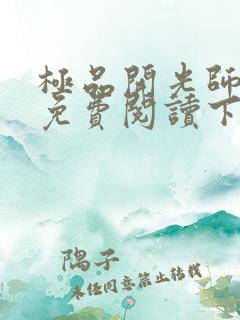 極品開光師
免費閱讀下
隅子
未經同意禁止轉載